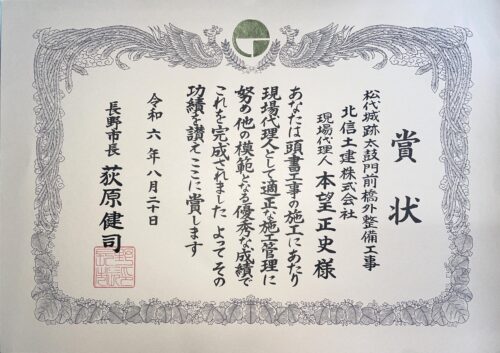 賞状
松代城跡太鼓門前橋外整備工事
北信土建株式会社
現場代理人 本望正史様
あなたは頭書工事の施工にあたり
現場代理人として適正な施工管理に
努め他の模範となる優秀な成績で
これを完成されました よってその
功績を讃えここに賞します
令和六年八月二十日
長野市長 荻原健司